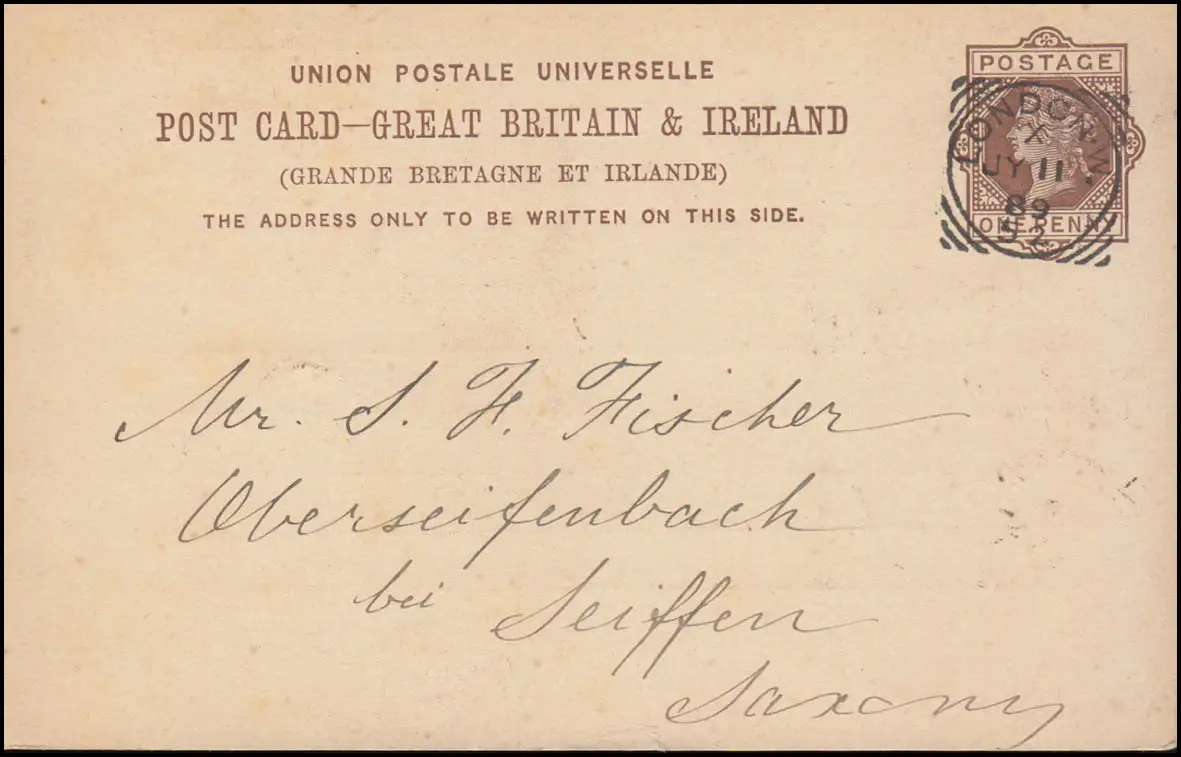 UNION POSTALE UNIVERSELLE
POST CARD—GREAT BRITAIN & IRELAND
(GRANDE BRETAGNE ET IRLANDE)
THE ADDRESS ONLY TO BE WRITTEN ON THIS SIDE.
POSTAGE
ONE PENNY
LONDON.W.
X
JY 11
89
52
Mr. S. F. Fischer
Oberseifenbach
bei Seiffen
Saxony